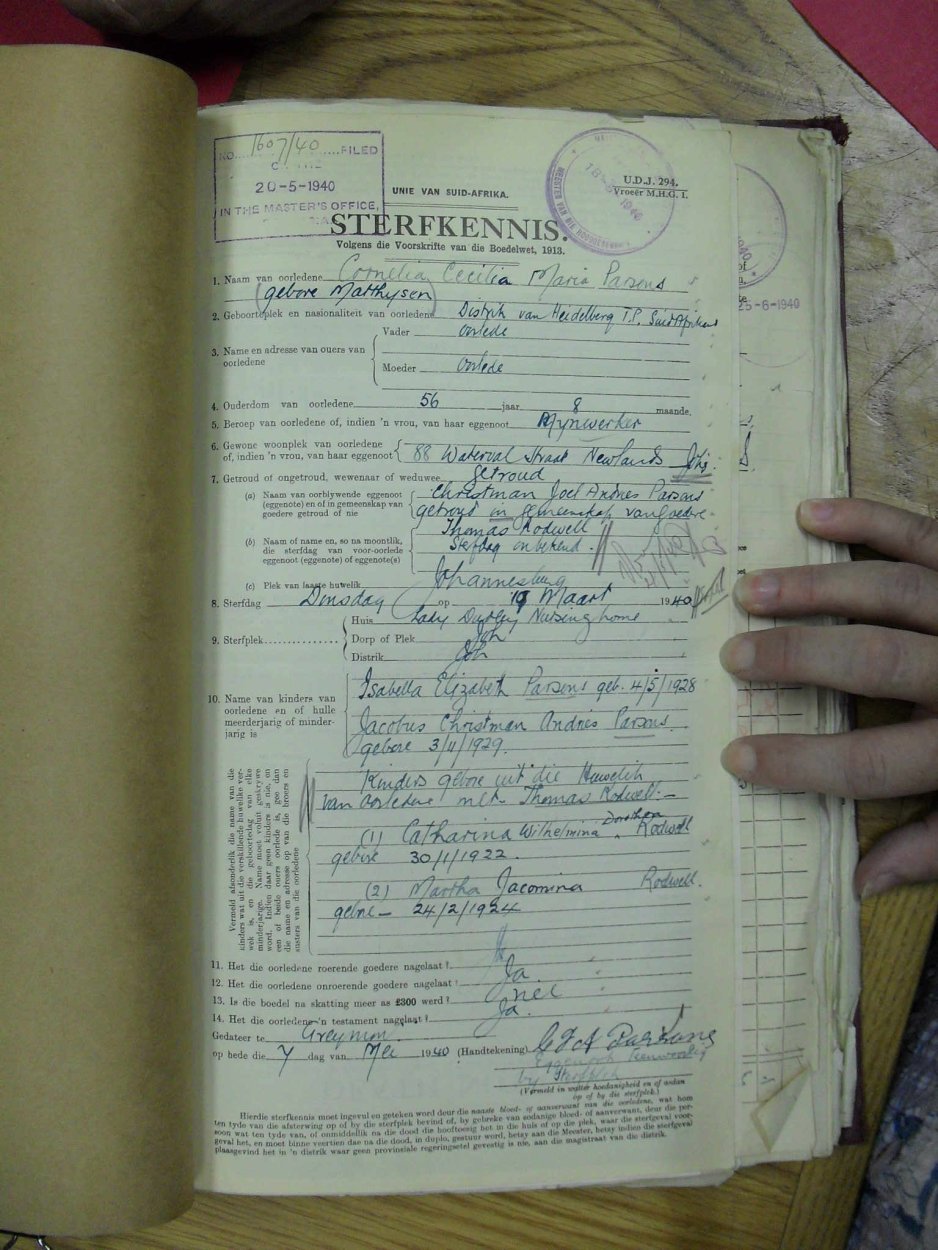 NO. 1607/40 FILED
20-5-1940
IN THE MASTER'S OFFICE,
UNIE VAN SUID-AFRIKA.
U.D.J. 294.
Vroeër M.H.G. 1.
STERFKENNIS.
Volgens die Voorskrifte van die Boedelwet, 1913.
1. Naam van oorledene Cornelia Cecilia Maria Parsons
(gebore Matthysen)
2. Geboorteplek en nasionaliteit van oorledene Distrik van Heidelberg T.P. Suid Afrikans
3. Name en adresse van ouers van oorledene
Vader oorlede
Moeder oorlede
4. Ouderdom van oorledene 56 jaar 8 maande.
5. Beroep van oorledene of, indien 'n vrou, van haar eggenoot Mynwerker
6. Gewone woonplek van oorledene
of, indien 'n vrou, van haar eggenoot 88 Waterval Straat Newlands Jhb.
7. Getroud of ongetroud, wewenaar of weduwee getroud
(a) Naam van oorblywende eggenoot
(eggenote) en of in gemeenskap van
goedere getroud of nie
Christman Joel Andries Parsons
getroud in gemeenskap van goedre
(b) Naam of name en, so na moontlik,
die sterfdag van voor-oorlede
eggenoot (eggenote) of eggenote(s)
Thomas Rodwell
Sterfdag onbekend.
(c) Plek van laaste huwelik Johannesburg
8. Sterfdag Dinsdag op 19 Maart 1940
9. Sterfplek
Huis Lady Dudley Nursing home
Dorp of Plek Jhb
Distrik Jhb
10. Name van kinders van
oorledene en of hulle
meerderjarig of minder-
jarig is
Isabella Elizabeth Parsons geb. 4/5/1928
Jacobus Christman Andries Parsons
gebore 3/11/1929.
Vermeld afsonderlik die name van die
kinders wat uit die verskillende huwelike ver-
wek is, en die geboortedag van elke
minderjarige. Name moet voluit geskrywe
word. Indien daar geen kinders is nie, en
een of beide ouers oorlede is, gee dan
die name en adresse op van die broers en
susters van die oorledene
Kinders gebore uit die Huwelik
van oorledene met Thomas Rodwell:-
(1) Catharina Wilhelmina Dorothea Rodwell
gebore 30/1/1922.
(2) Martha Jacomina Rodwell.
gebore - 24/2/1924
11. Het die oorledene roerende goedere nagelaat? Ja
12. Het die oorledene onroerende goedere nagelaat? Ja
13. Is die boedel na skatting meer as £300 werd? nee
14. Het die oorledene 'n testament nagelaat? Ja.
Gedateer te Greymon
op hede die 7 dag van Mei 1940 (Handtekening) C J A Parsons
Eggenoot teenwoordig
by sterfplek
(Vermeld in watter hoedanigheid en of aldan
op of by die sterfplek.)
Hierdie sterfkennis moet ingevul en geteken word deur die naaste bloed- of aanverwant van die oorledene, wat hom
ten tyde van die afsterwing op of by die sterfplek bevind of, by gebreke van sodanige bloed- of aanverwant, deur die per-
soon wat ten tyde van, of onmiddellik na die dood die hooftoesig het in die huis of op die plek, waar die sterfgeval voor-
geval het, en moet binne veertien dae na die dood, in duplo, gestuur word, betsy aan die Meester, betsy indien die sterfgeval
plaasgevind het in 'n distrik waar geen provinsiale regeringsetel gevestig is nie, aan die magistraat van die distrik.
25-6-1940